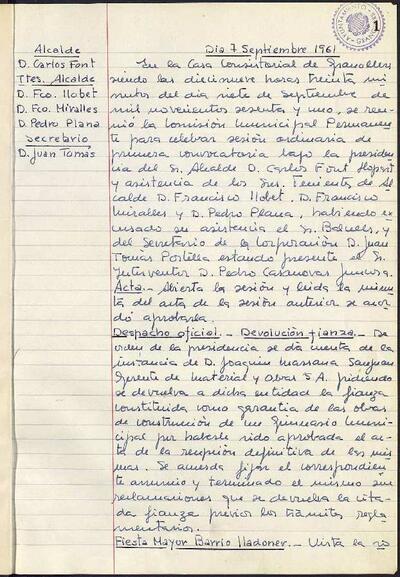 1
Alcalde
D. Carlos Font
Ttes. Alcalde
D. Fco. Llobet
D. Fco. Miralles
D. Pedro Plana
Secretario
D. Juan Tomás
Dia 7 Septiembre 1961
En la Casa Consistorial de Granollers
siendo las diecinueve horas treinta mi
nutos del dia siete de Septiembre de
mil novecientos sesenta y uno, se reu-
nió la Comisión Municipal Permanen
te para celebrar sesión ordinaria de
primera convocatoria bajo la presiden
cia del Sr. Alcalde D. Carlos Font
y asistencia de los Sres. Tenientes de Al
calde D. Francisco Llobet, D. Francisco
Miralles y D. Pedro Plana, habiendo ex
cusado su asistencia el Sr. y
del Secretario de la Corporación D. Juan
Tomás Portilla estando presente el Sr.
Interventor D. Pedro Casanovas
Acta.- Abierta la sesión y leida la minu
ta del acta de la sesión anterior se acor
dó aprobarla.
Despacho oficial.- Devolución fianza.- De
orden de la presidencia se dá cuenta de la
instancia de D. Joaquin Massana Sanjuan
Gerente de Material y Obras S.A. pidiendo
se devuelva a dicha entidad la fianza
constituida como garantia de las obras
de construcción de un Gimnasio Munici
pal por haberle sido aprobada el ac
ta de la recepción definitiva de las mis
mas. Se acuerda fijar el correspondien
te anuncio y terminado el mismo sin
reclamaciones que se devuelva la cita
da fianza previos los trámites regla
mentarios.
Fiesta Mayor Barrio Lladoner.- Vista la so